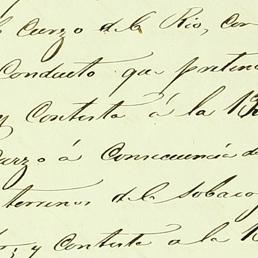 Curzo de la Rio, con
Conducto que preten
y Contesta á la 13
Curzo á Consecuencia de
terrenos de la sobaco
y Contesta a la 1